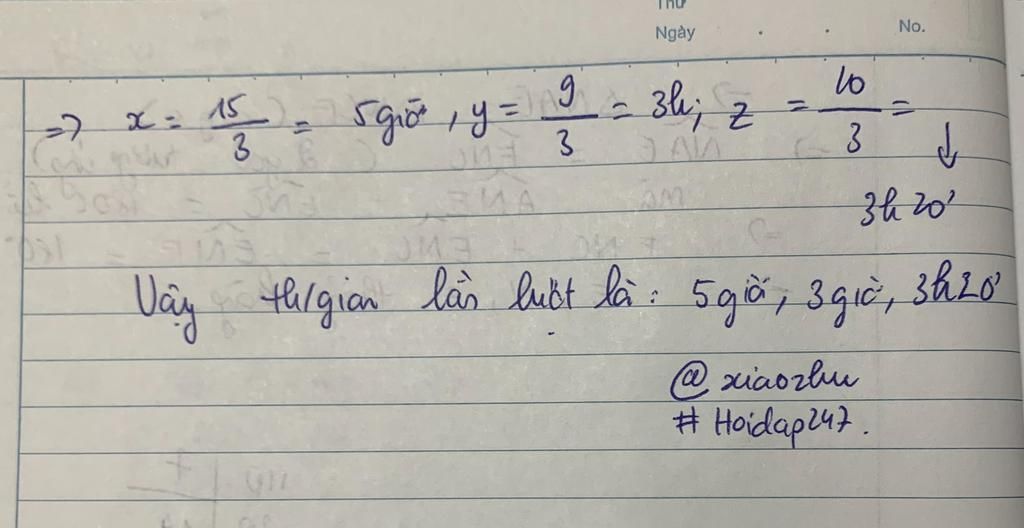 Thứ
Ngày . . No.
=> x = 15/3 = 5giờ, y = 9/3 = 3h; z = 10/3 = ↓
3h 20'
Vậy th/gian lần lượt là: 5giờ, 3giờ, 3h20'
@xiaozhu
# Hoidap247.